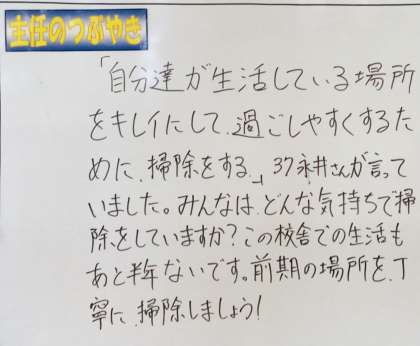 主任のつぶやき
「自分達が生活している場所
をキレイにして、過ごしやすくするた
めに、掃除をする。」37永井さんが言って
いました。みんなは、どんな気持ちで掃
除をしていますか?この校舎での生活も
あと半年ないです。前期の場所を、丁
寧に、掃除しましょう!